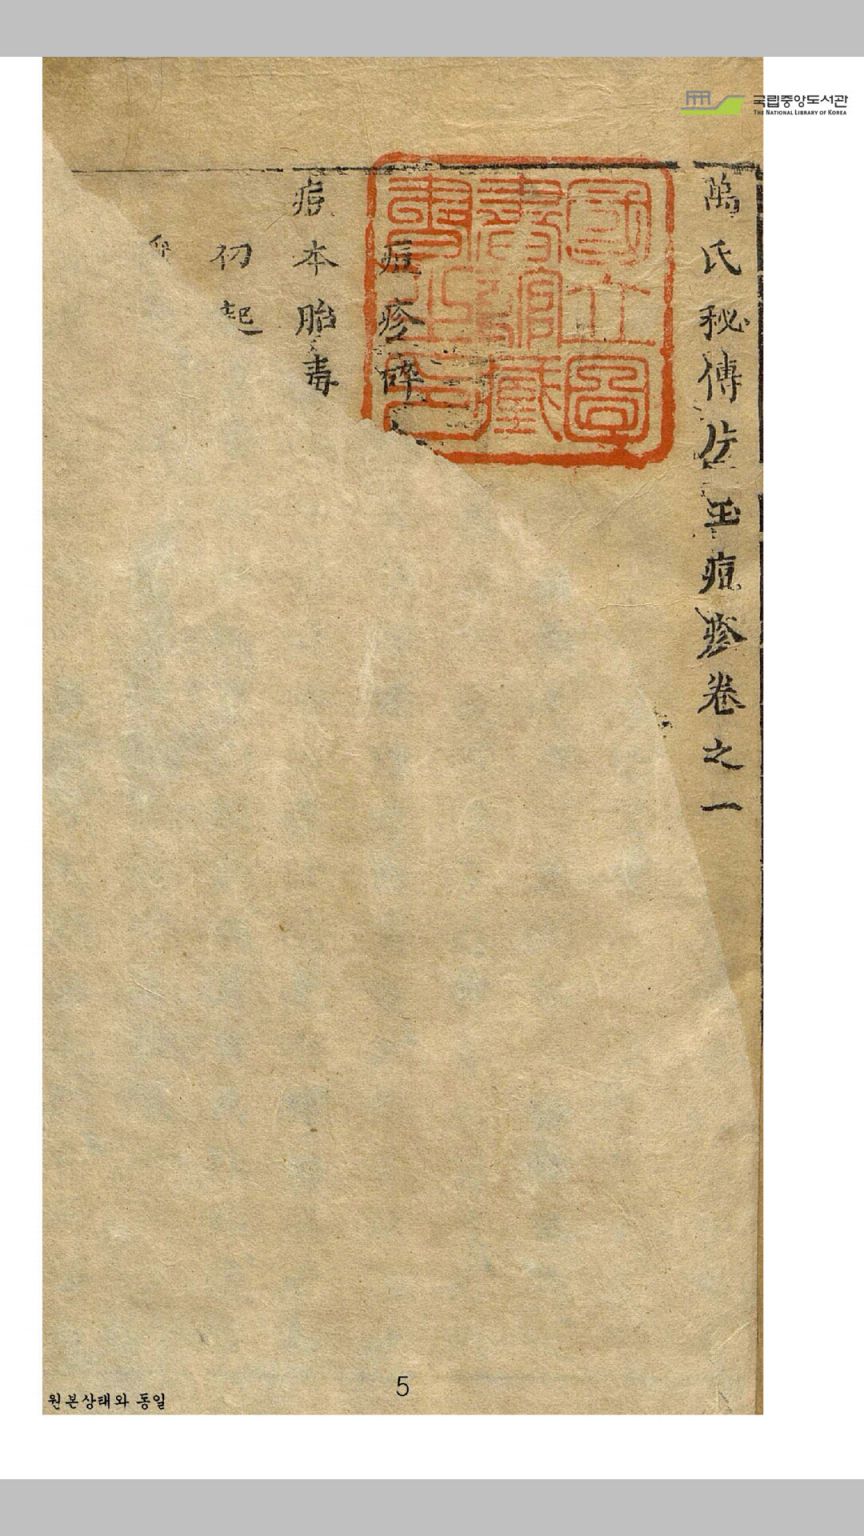 萬氏秘傳片玉痘疹卷之一
國立圖書館藏書之印
痘疹碎
痘本胎毒
初起
국립중앙도서관
THE NATIONAL LIBRARY OF KOREA
5
원본상태와 동일